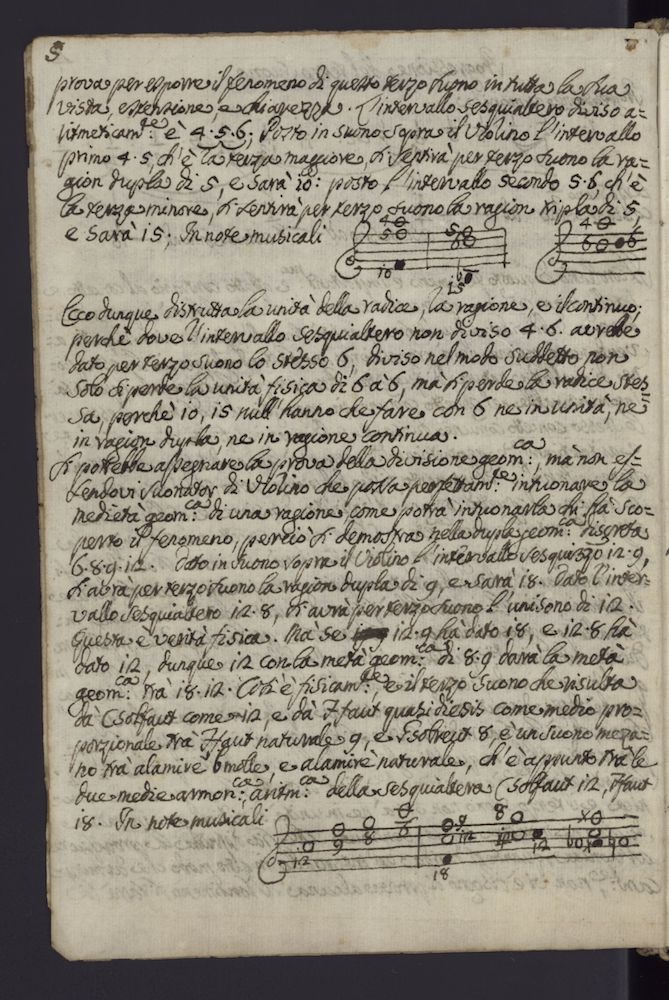 5
prova per esporre il fenomeno di questo terzo suono in tutta la sua
vista, estensione, e chiarezza. L'intervallo sesquialtero diviso a=
ritmeticam:te è 4.5.6; Posto in suono sopra il Violino l'intervallo
primo 4.5, ch'è la terza maggiore, si sentirà per terzo suono la ra=
gion dupla di 5, e sarà 10: posto l'intervallo secondo 5.6, ch'è
la terza minore, si sentirà per terzo suono la ragion tripla di 5
e sarà 15; In note musicali 4 5 10 5 6 15 4 6
Ecco dunque distrutta la unità della radice, la ragione, e il continuo;
perché dove l'intervallo sesquialtero non diviso 4.6. avrebbe
dato per terzo suono lo stesso 6, diviso nel modo suddetto non
solo si perde la unità fisica di 6 à 6, mà si perde la radice stes=
sa, perchè 10, 15 null'hanno che fare con 6 ne in unità, ne
in ragion dupla, ne in ragione continua.
Si potrebbe assegnare la prova della divisione geom:ca, mà non es=
sendovi suonator di Violino che possa perfettam:te intuonare la
medietà geom:ca di una ragione come potrà intuonarla chi hà sco=
perto il fenomeno, perciò si demostra nella dupla geom:ca discreta
6.8.9.12. Dato in suono sopra il Violino l'intervallo sesquiterzo 12.9,
si avrà per terzo suono la ragion dupla di 9, e sarà 18. Dato l'inter=
vallo sesquialtero 12.8, si avrà per terzo suono l'unisono di 12.
Questa è verità fisica. Mà se 12.9 hà dato 18, e 12.8 hà
dato 12, dunque 12 con la metà geom:ca di 8.9 darà la metà
geom:ca trà 18.12. Così è fisicam:te, e il terzo suono che risulta
dà Csolfaut come 12, e dà Ffaut quasi diesis come medio pro=
porzionale trà Ffaut naturale 9, e Gsolreut 8, è un suono meza=
no trà alamirè bmolle, e alamirè naturale, ch'è appunto trà le
due medie armon:ca, aritm:ca della sesquialtera Csolfaut 12, Ffaut
18. In note musicali 12 9 8 6 9 12 18 8 12 12